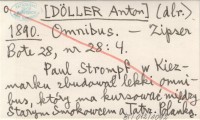 [DÖLLER Anton] (dlr.)
1890. Omnibus. — Zipser
Bote 28, nr 28: 4.
Paul Strompf w Kiez-
marku zbudował lekki omni-
bus, który ma kursować między
Starym Smokowcem a Tatrz. Polanką.